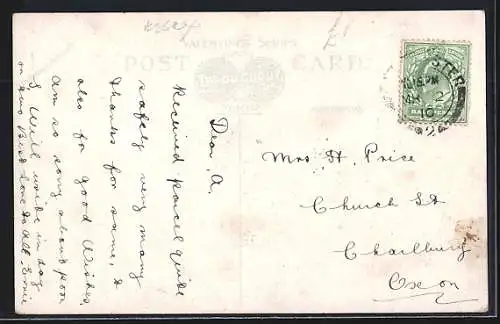 Essex
£1
VALENTINE'S SERIES
POST CARD
Dear A,
Received parcel quite
safely very many
thanks for same, &
also for good Wishes.
am so sorry about poor
I Will write in day
or two Best Love to All
Mrs H. Price
Church St
Charlbury
Oxon